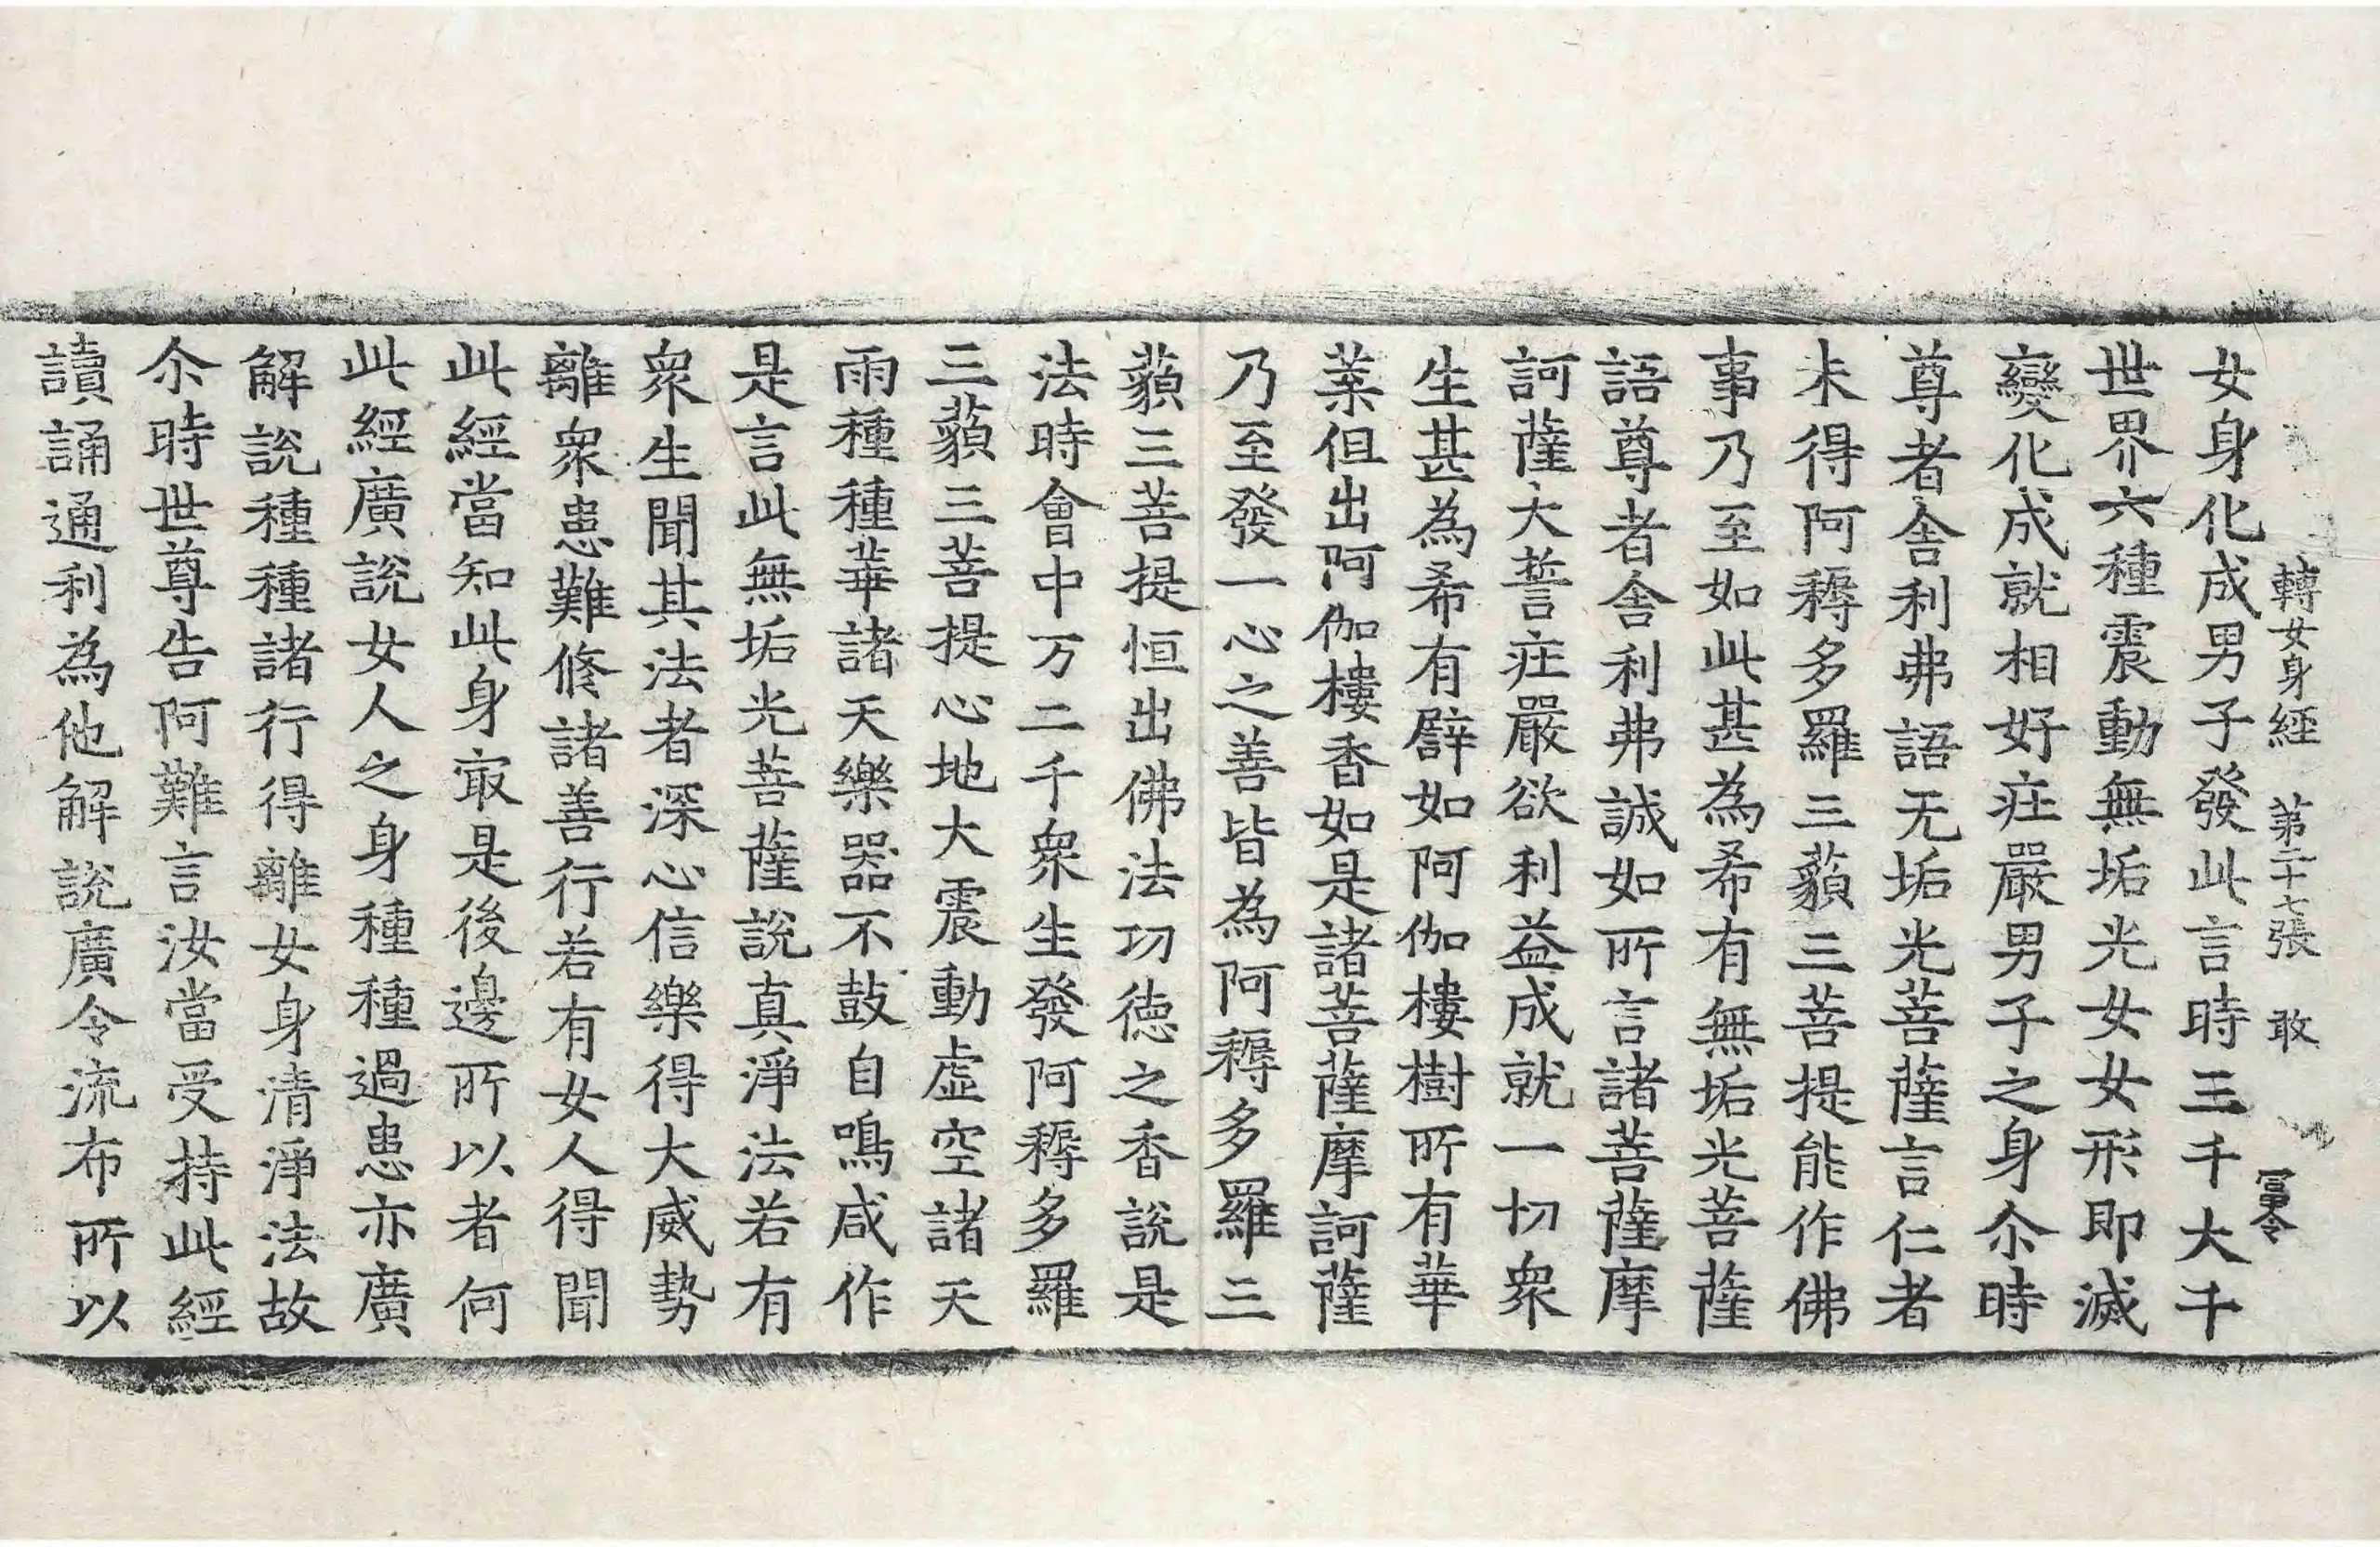 轉女身經 第二十七張 敢
富令
女身化成男子發此言時三千大千
世界六種震動無垢光女女形即滅
變化成就相好疘嚴男子之身尒時
尊者舍利弗語无垢光菩薩言仁者
未得阿耨多羅三藐三菩提能作佛
事乃至如此甚為希有無垢光菩薩
語尊者舍利弗誠如所言諸菩薩摩
訶薩大誓疘嚴欲利益成就一切衆
生甚為希有譬如阿伽樓樹所有華
葉但出阿伽樓香如是諸菩薩摩訶薩
乃至發一心之善皆為阿耨多羅三
藐三菩提恒出佛法功徳之香說是
法時會中万二千衆生發阿耨多羅
三藐三菩提心地大震動虛空諸天
雨種種華諸天樂器不鼓自鳴咸作
是言此無垢光菩薩說真淨法若有
衆生聞其法者深心信樂得大威勢
離衆患難修諸善行若有女人得聞
此經當知此身㝡是後邊所以者何
此經廣說女人之身種種過患亦廣
解說種種諸行得離女身清淨法故
尒時世尊告阿難言汝當受持此經
讀誦通利為他解說廣令流布所以